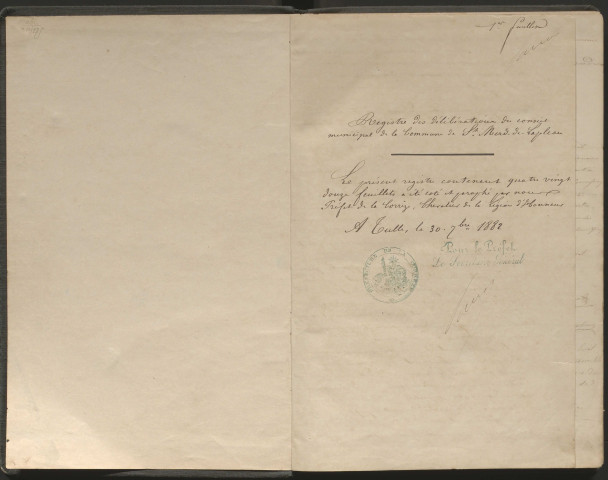 1er feuillet
Registre des délibérations du conseil
municipal de la Commune de St Merd de Lapleau
Le présent registre contenant quatre vingt
douze feuillets a été coté et paraphé par nous
Préfet de la Corrèze, Chevalier de la Légion d'Honneur
A Tulle, le 30 7bre 1882
Pour le Préfet
Le Secrétaire Général